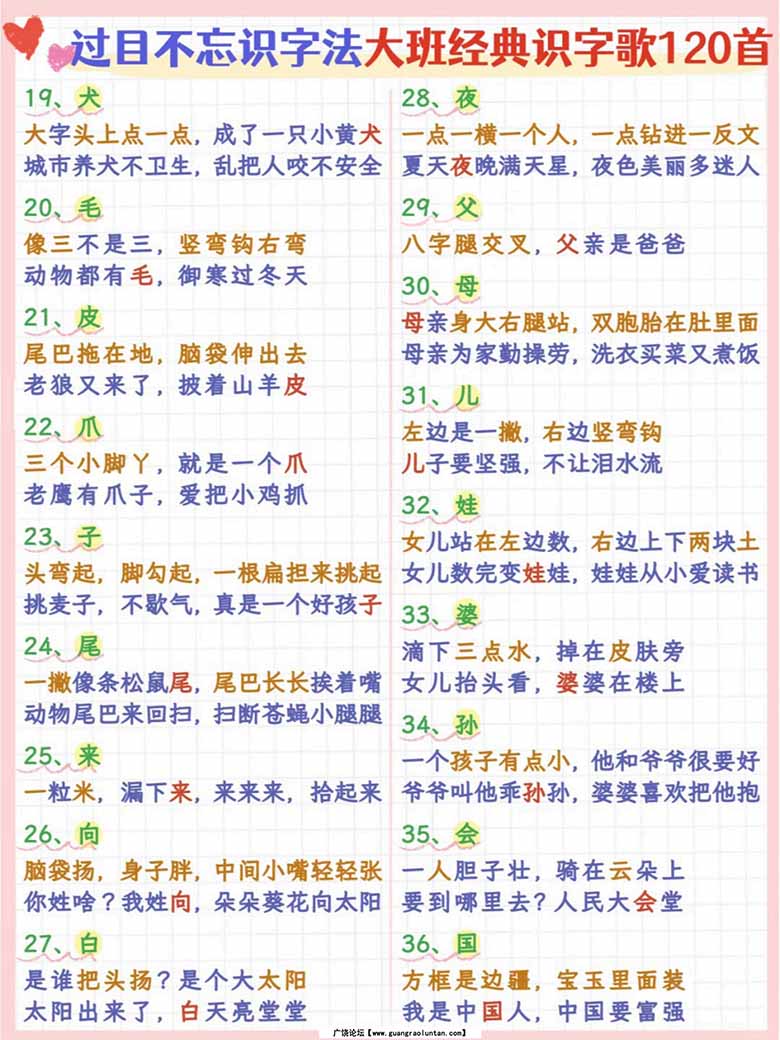 过目不忘识字法大班经典识字歌120首
19、犬
大字头上点一点，成了一只小黄犬
城市养犬不卫生，乱把人咬不安全
20、毛
像三不是三，竖弯钩右弯
动物都有毛，御寒过冬天
21、皮
尾巴拖在地，脑袋伸出去
老狼又来了，披着山羊皮
22、爪
三个小脚丫，就是一个爪
老鹰有爪子，爱把小鸡抓
23、子
头弯起，脚勾起，一根扁担来挑起
挑麦子，不歇气，真是一个好孩子
24、尾
一撇像条松鼠尾，尾巴长长挨着嘴
动物尾巴来回扫，扫断苍蝇小腿腿
25、来
一粒米，漏下来，来来来，拾起来
26、向
脑袋扬，身子胖，中间小嘴轻轻张
你姓啥？我姓向，朵朵葵花向太阳
27、白
是谁把头扬？是个大太阳
太阳出来了，白天亮堂堂
28、夜
一点一横一个人，一点钻进一反文
夏天夜晚满天星，夜色美丽多迷人
29、父
八字腿交叉，父亲是爸爸
30、母
母亲身大右腿站，双胞胎在肚里面
母亲为家勤操劳，洗衣买菜又煮饭
31、儿
左边是一撇，右边竖弯钩
儿子要坚强，不让泪水流
32、娃
女儿站在左边数，右边上下两块土
女儿数完变娃娃，娃娃从小爱读书
33、婆
滴下三点水，掉在皮肤旁
女儿抬头看，婆婆在楼上
34、孙
一个孩子有点小，他和爷爷很要好
爷爷叫他乖孙孙，婆婆喜欢把他抱
35、会
一人胆子壮，骑在云朵上
要到哪里去？人民大会堂
36、国
方框是边疆，宝玉里面装
我是中国人，中国要富强
广饶论坛【www.guangraoluntan.com】